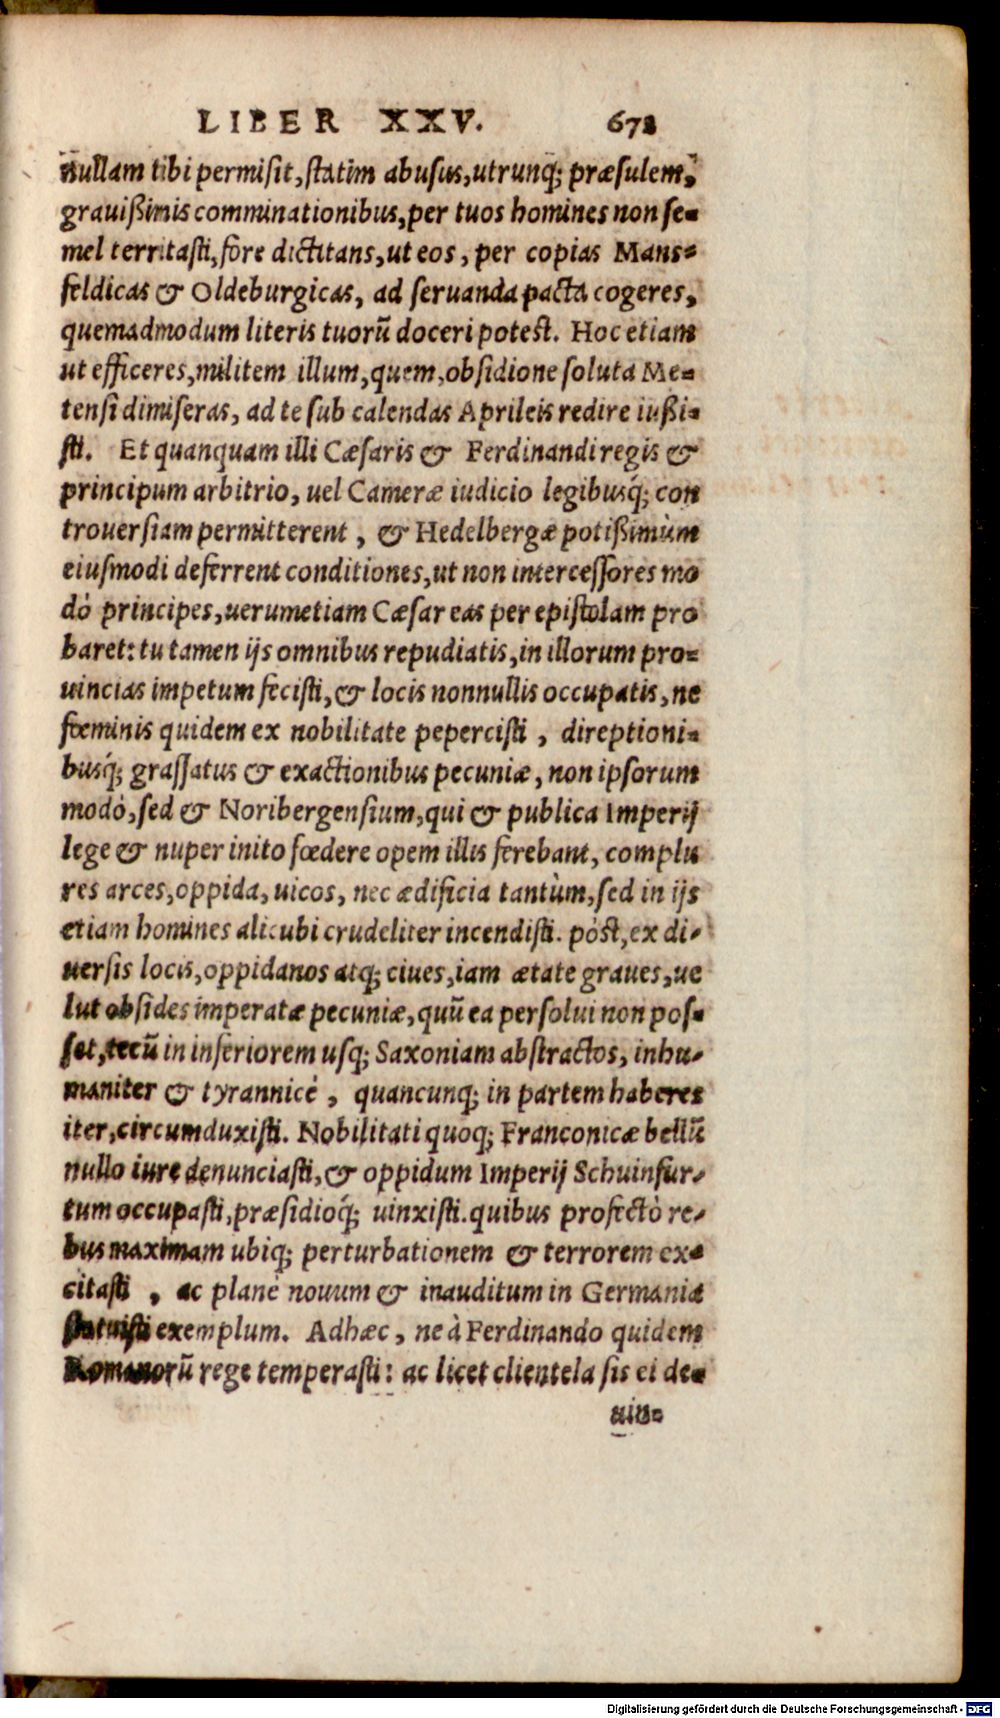 LIBER XXV. 672
nullam tibi permisit, statim abusus, utrunq; præsulem,
grauißimis comminationibus, per tuos homines non se-
mel territasti, fore dictitans, ut eos, per copias Mans-
feldicas & Oldeburgicas, ad seruanda pacta cogeres,
quemadmodum literis tuorū doceri potest. Hoc etiam
ut efficeres, militem illum, quem, obsidione soluta Me-
tensi dimiseras, ad te sub calendas Aprileis redire iußi-
sti. Et quanquam illi Cæsaris & Ferdinandi regis &
principum arbitrio, uel Cameræ iudicio legibusq́; con
trouersiam permitterent, & Hedelbergæ potißimùm
eiusmodi deferrent conditiones, ut non intercessores mo
dò principes, uerumetiam Cæsar eas per epistolam pro
baret: tu tamen ijs omnibus repudiatis, in illorum pro-
uincias impetum fecisti, & locis nonnullis occupatis, ne
fœminis quidem ex nobilitate pepercisti, direptioni-
busq́; grassatus & exactionibus pecuniæ, non ipsorum
modò, sed & Noribergensium, qui & publica Imperij
lege & nuper inito fœdere opem illis ferebant, complu
res arces, oppida, uicos, nec ædificia tantùm, sed in ijs
etiam homines alicubi crudeliter incendisti. pòst, ex di-
uersis locis, oppidanos atq; ciues, iam ætate graues, ue
lut obsides imperatæ pecuniæ, quū ea persolui non pos-
set, tecū in inferiorem usq; Saxoniam abstractos, inhu-
maniter & tyrannicè, quancunq; in partem haberes
iter, circumduxisti. Nobilitati quoq; Franconicæ bellū
nullo iure denunciasti, & oppidum Imperij Schuinfur-
tum occupasti, præsidioq́; uinxisti. quibus profectò re-
bus maximam ubiq; perturbationem & terrorem ex-
citasti, ac planè nouum & inauditum in Germania
statuisti exemplum. Adhæc, ne à Ferdinando quidem
Romanorū rege temperasti: ac licet clientela sis ei de-
uin-
Digitalisierung gefördert durch die Deutsche Forschungsgemeinschaft - DFG